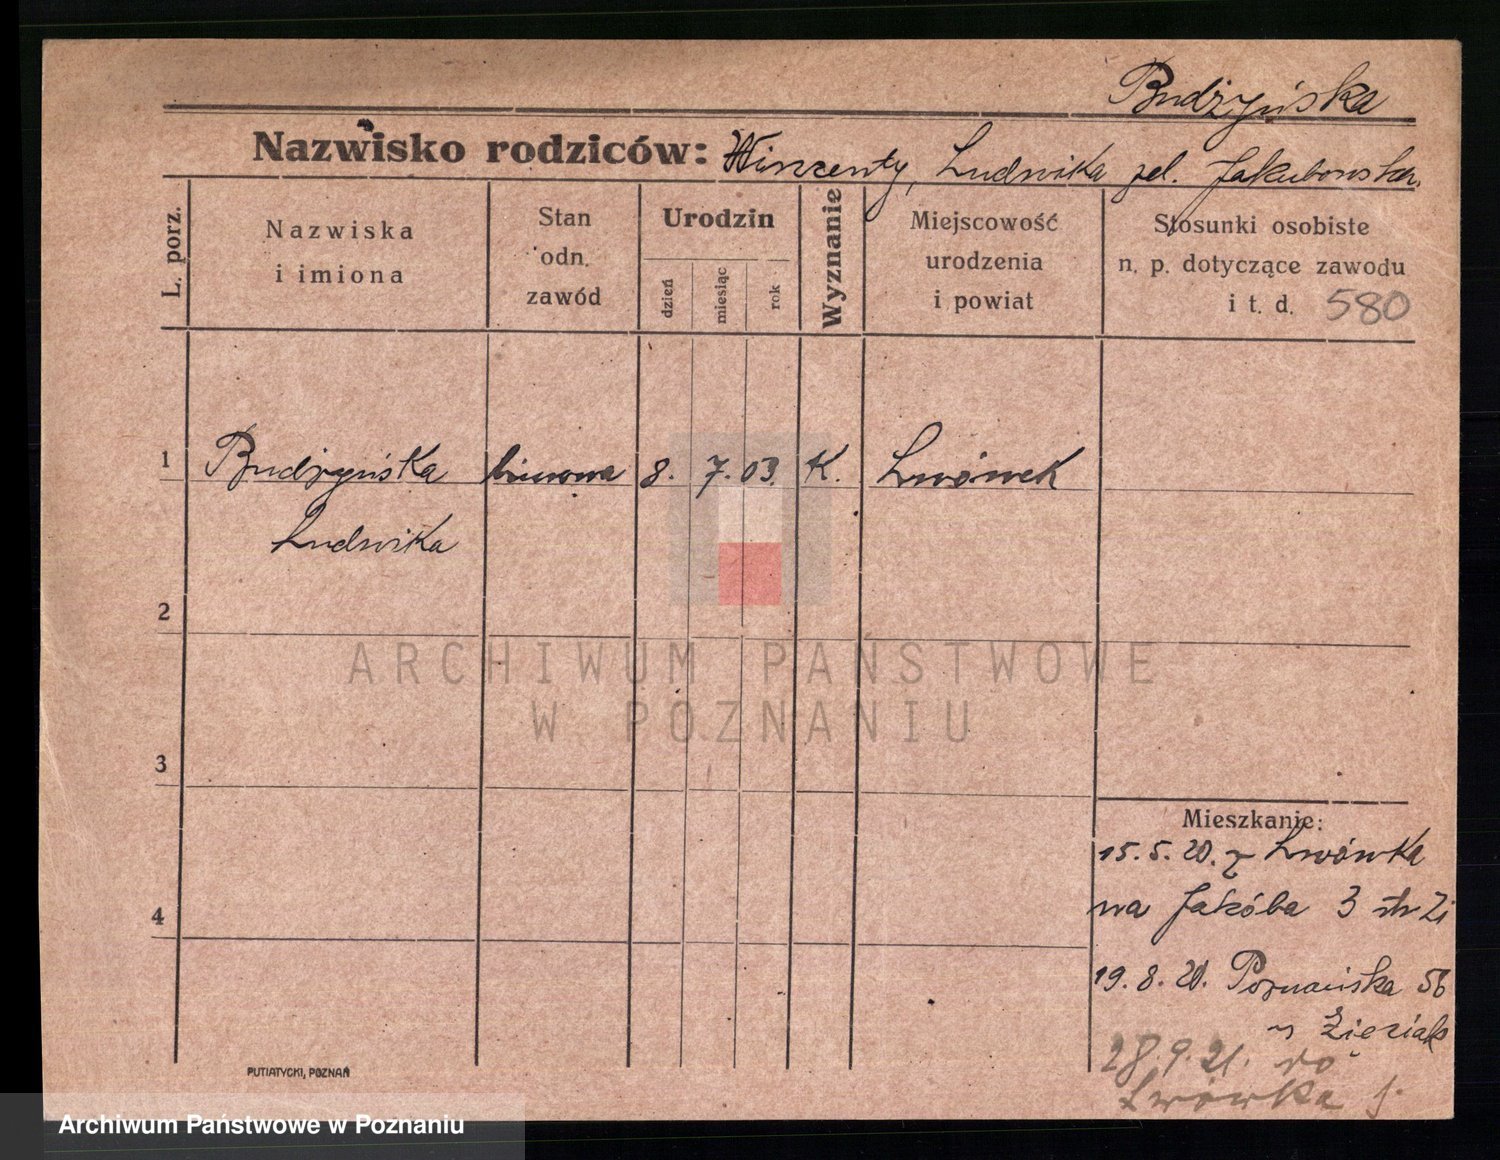 Budzyńska
Nazwisko rodziców: Winzenty, Ludwika zd. Jakubowska
L. porz.
Nazwiska
i imiona
Stan
odn.
zawód
Urodzin
dzień
miesiąc
rok
Wyznanie
Miejscowość
urodzenia
i powiat
Stosunki osobiste
n. p. dotyczące zawodu
i t. d. 580
1 Budzyńska biurowa 8. 7. 03. K. Lwówek
Ludwika
2
ARCHIWUM PAŃSTWOWE
W POZNANIU
3
Mieszkanie:
15. 5. 20. z Lwówka
4
na Jakóba 3
19. 8. 20. Poznańska 56
28. 9. 21. do
Lwówka
PUTIATYCKI, POZNAŃ
Archiwum Państwowe w Poznaniu